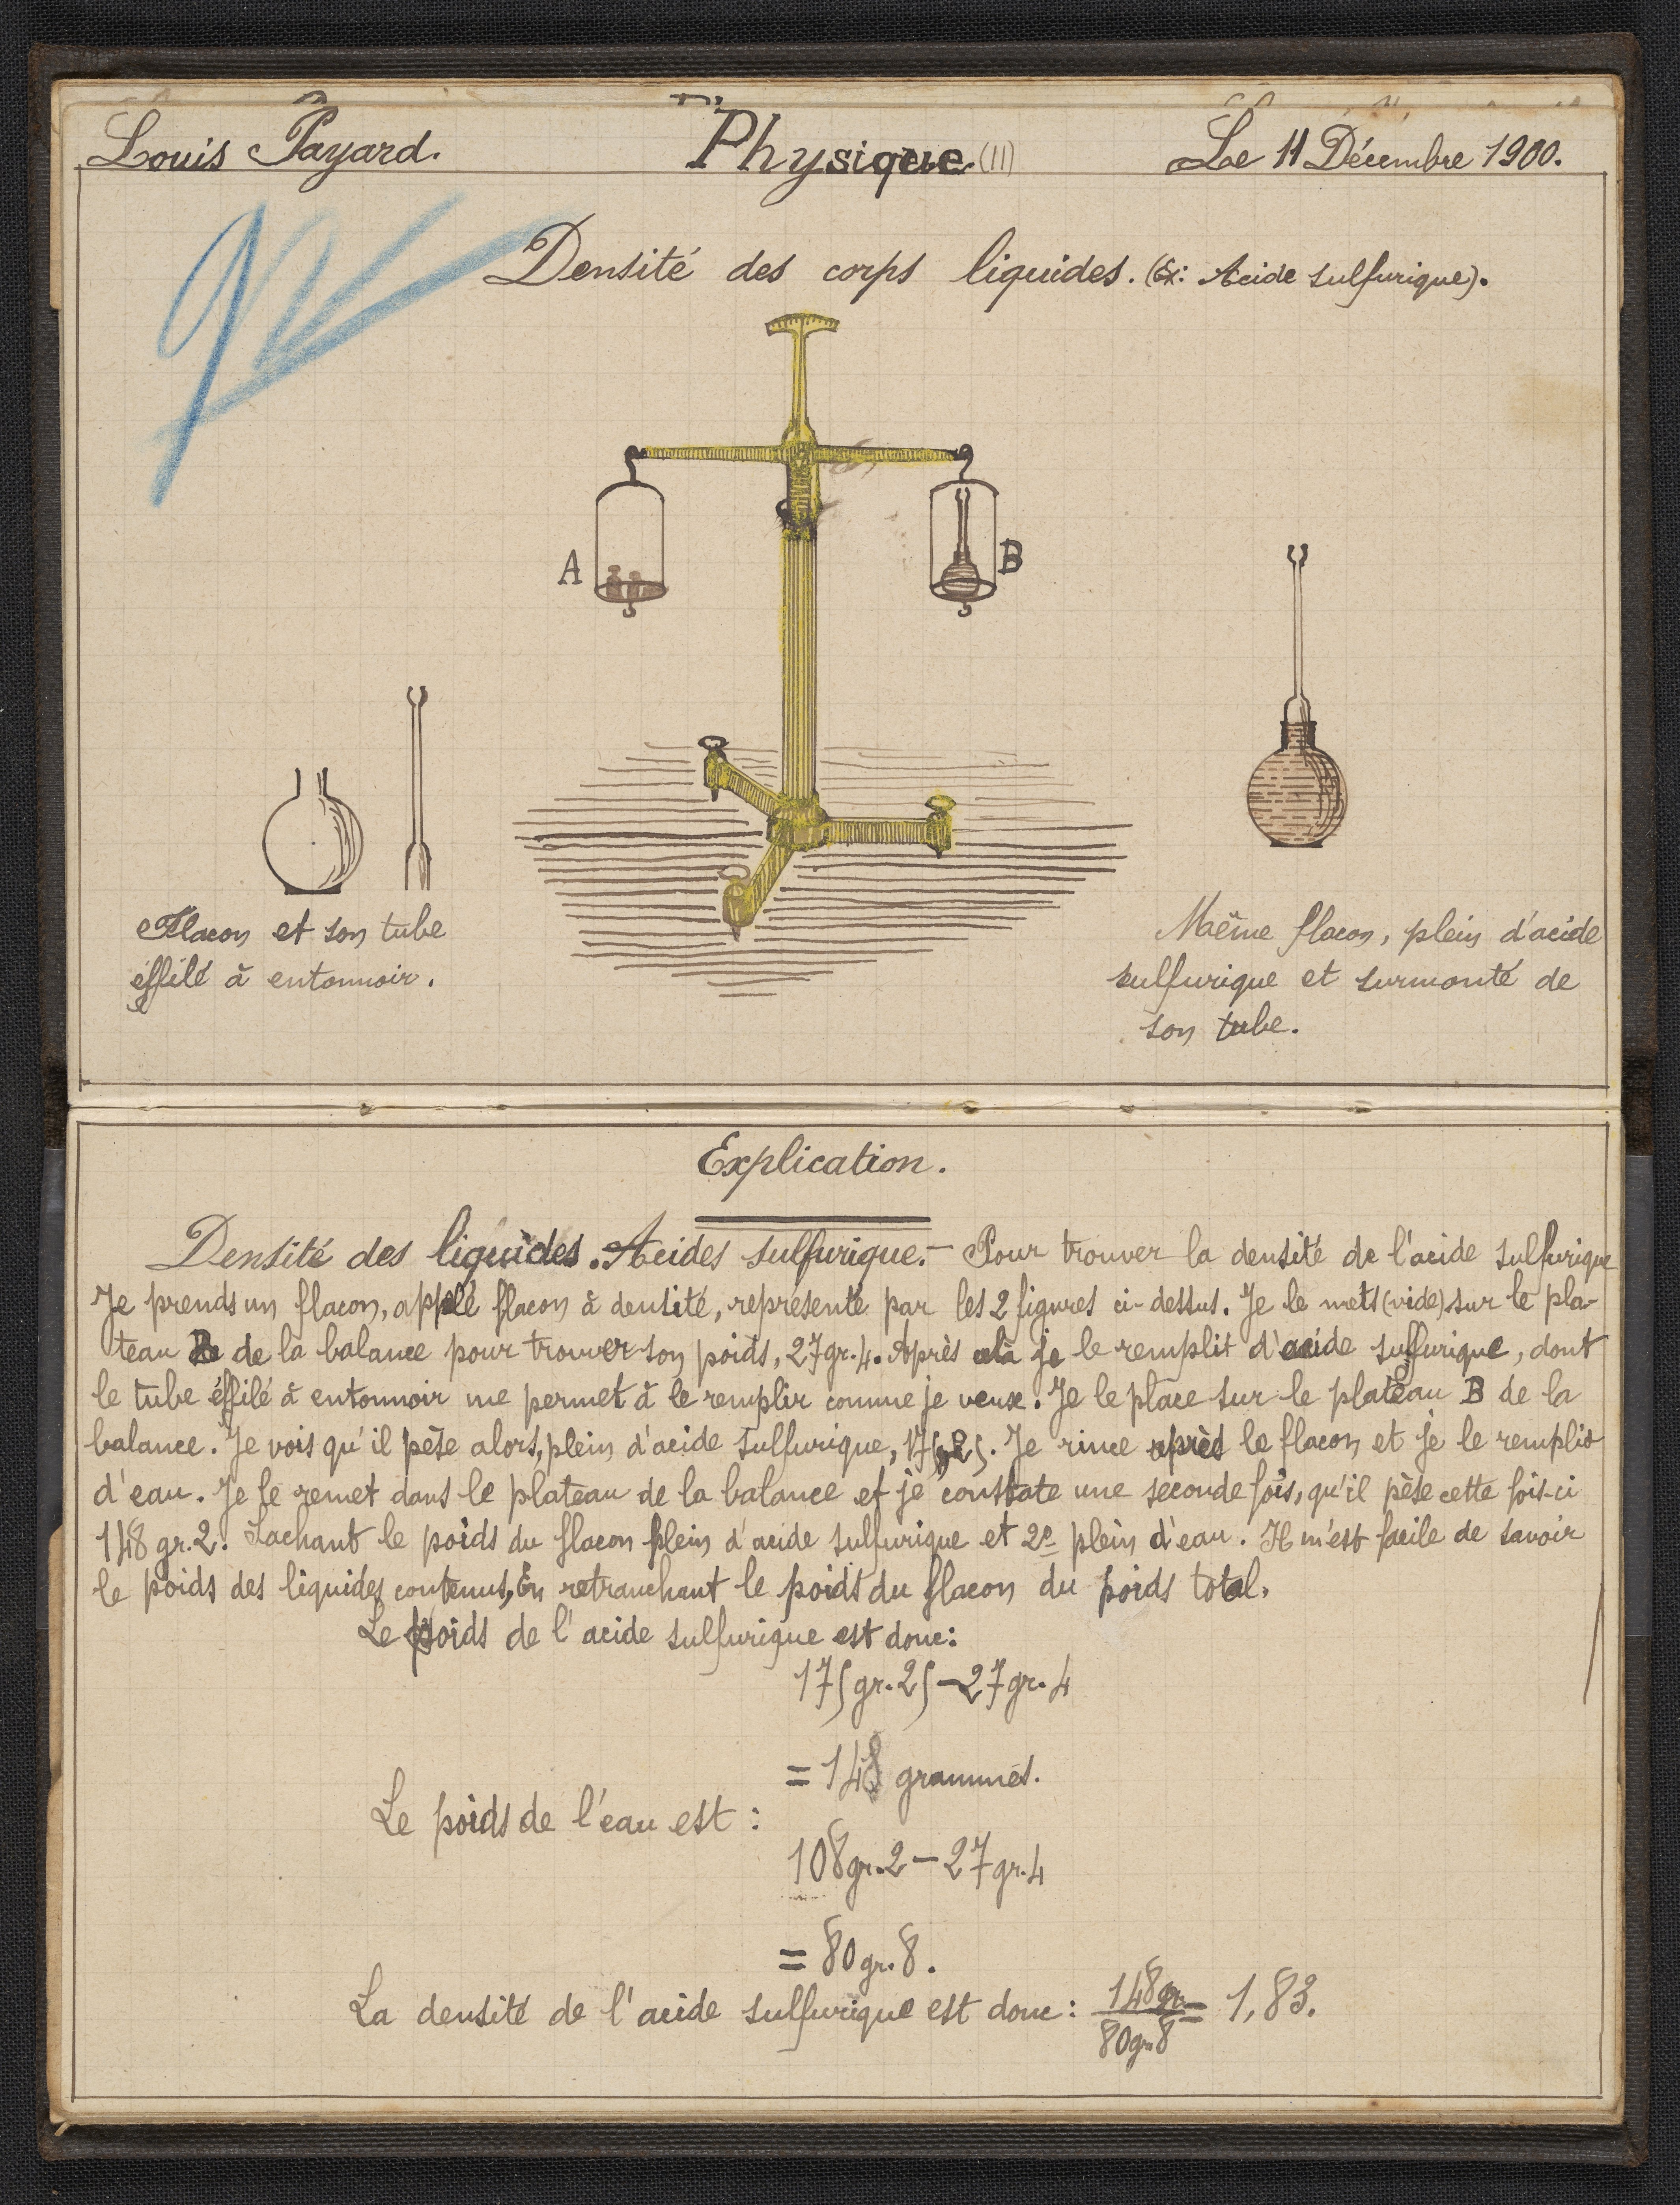 Louis Payard.
Physique (11)
Le 11 Décembre 1900.
Densité des corps liquides. (Ex: Acide sulfurique).
A
B
Flacon et son tube
éffilé à entonnoir.
Même flacon, plein d'acide
sulfurique et surmonté de
son tube.
Explication.
Densité des liquides. Acides sulfurique. - Pour trouver la densité de l'acide sulfurique
Je prends un flacon, applé flacon à densité, représenté par les 2 figures ci-dessus. Je le mets (vide) sur le pla-
teau B de la balance pour trouver son poids, 27gr.4. Après cela je le remplit d'acide sulfurique, dont
le tube éffilé à entonnoir me permet à le remplir comme je veux. Je le place sur le plateau B de la
balance. Je vois qu'il pèse alors, plein d'acide sulfurique, 175,25. Je rince après le flacon et je le remplis
d'eau. Je le remet dans le plateau de la balance et je constate une seconde fois, qu'il pèse cette fois-ci
148 gr.2. Sachant le poids du flacon plein d'acide sulfurique et 2e plein d'eau. Il m'est facile de savoir
le poids des liquides contenus, En retranchant le poids du flacon du poids total.
Le poids de l'acide sulfurique est donc:
175gr.25 - 27gr.4
= 148 grammes.
Le poids de l'eau est :
108gr.2 - 27gr.4
= 80gr.8.
La densité de l'acide sulfurique est donc : 148gr / 80gr.8 = 1,83.